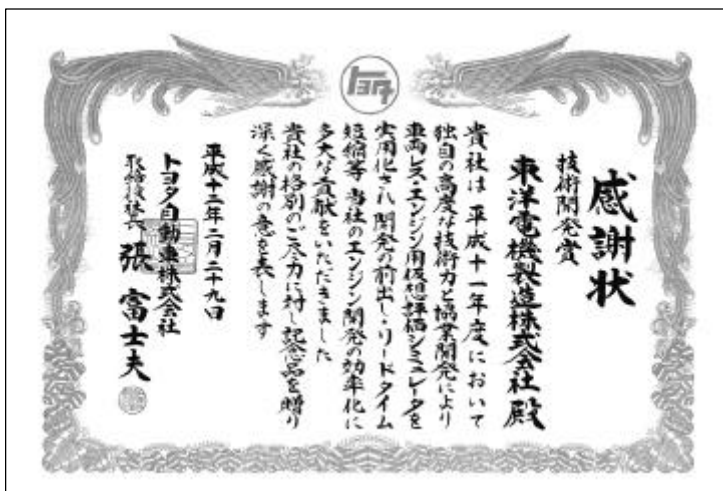 トヨタ
感謝状
技術開発賞
東洋電機製造株式会社 殿
貴社は 平成十一年度において
独自の高度な技術力と協業開発により
車両レス・エンジン用仮想評価シミュレータを
実用化され 開発の前出し・リードタイム
短縮等 当社のエンジン開発の効率化に
多大な貢献をいただきました
貴社の格別のご尽力に対し 記念品を贈り
深く感謝の意を表します
平成十二年二月二十九日
トヨタ自動車株式会社
取締役社長 張 富士夫